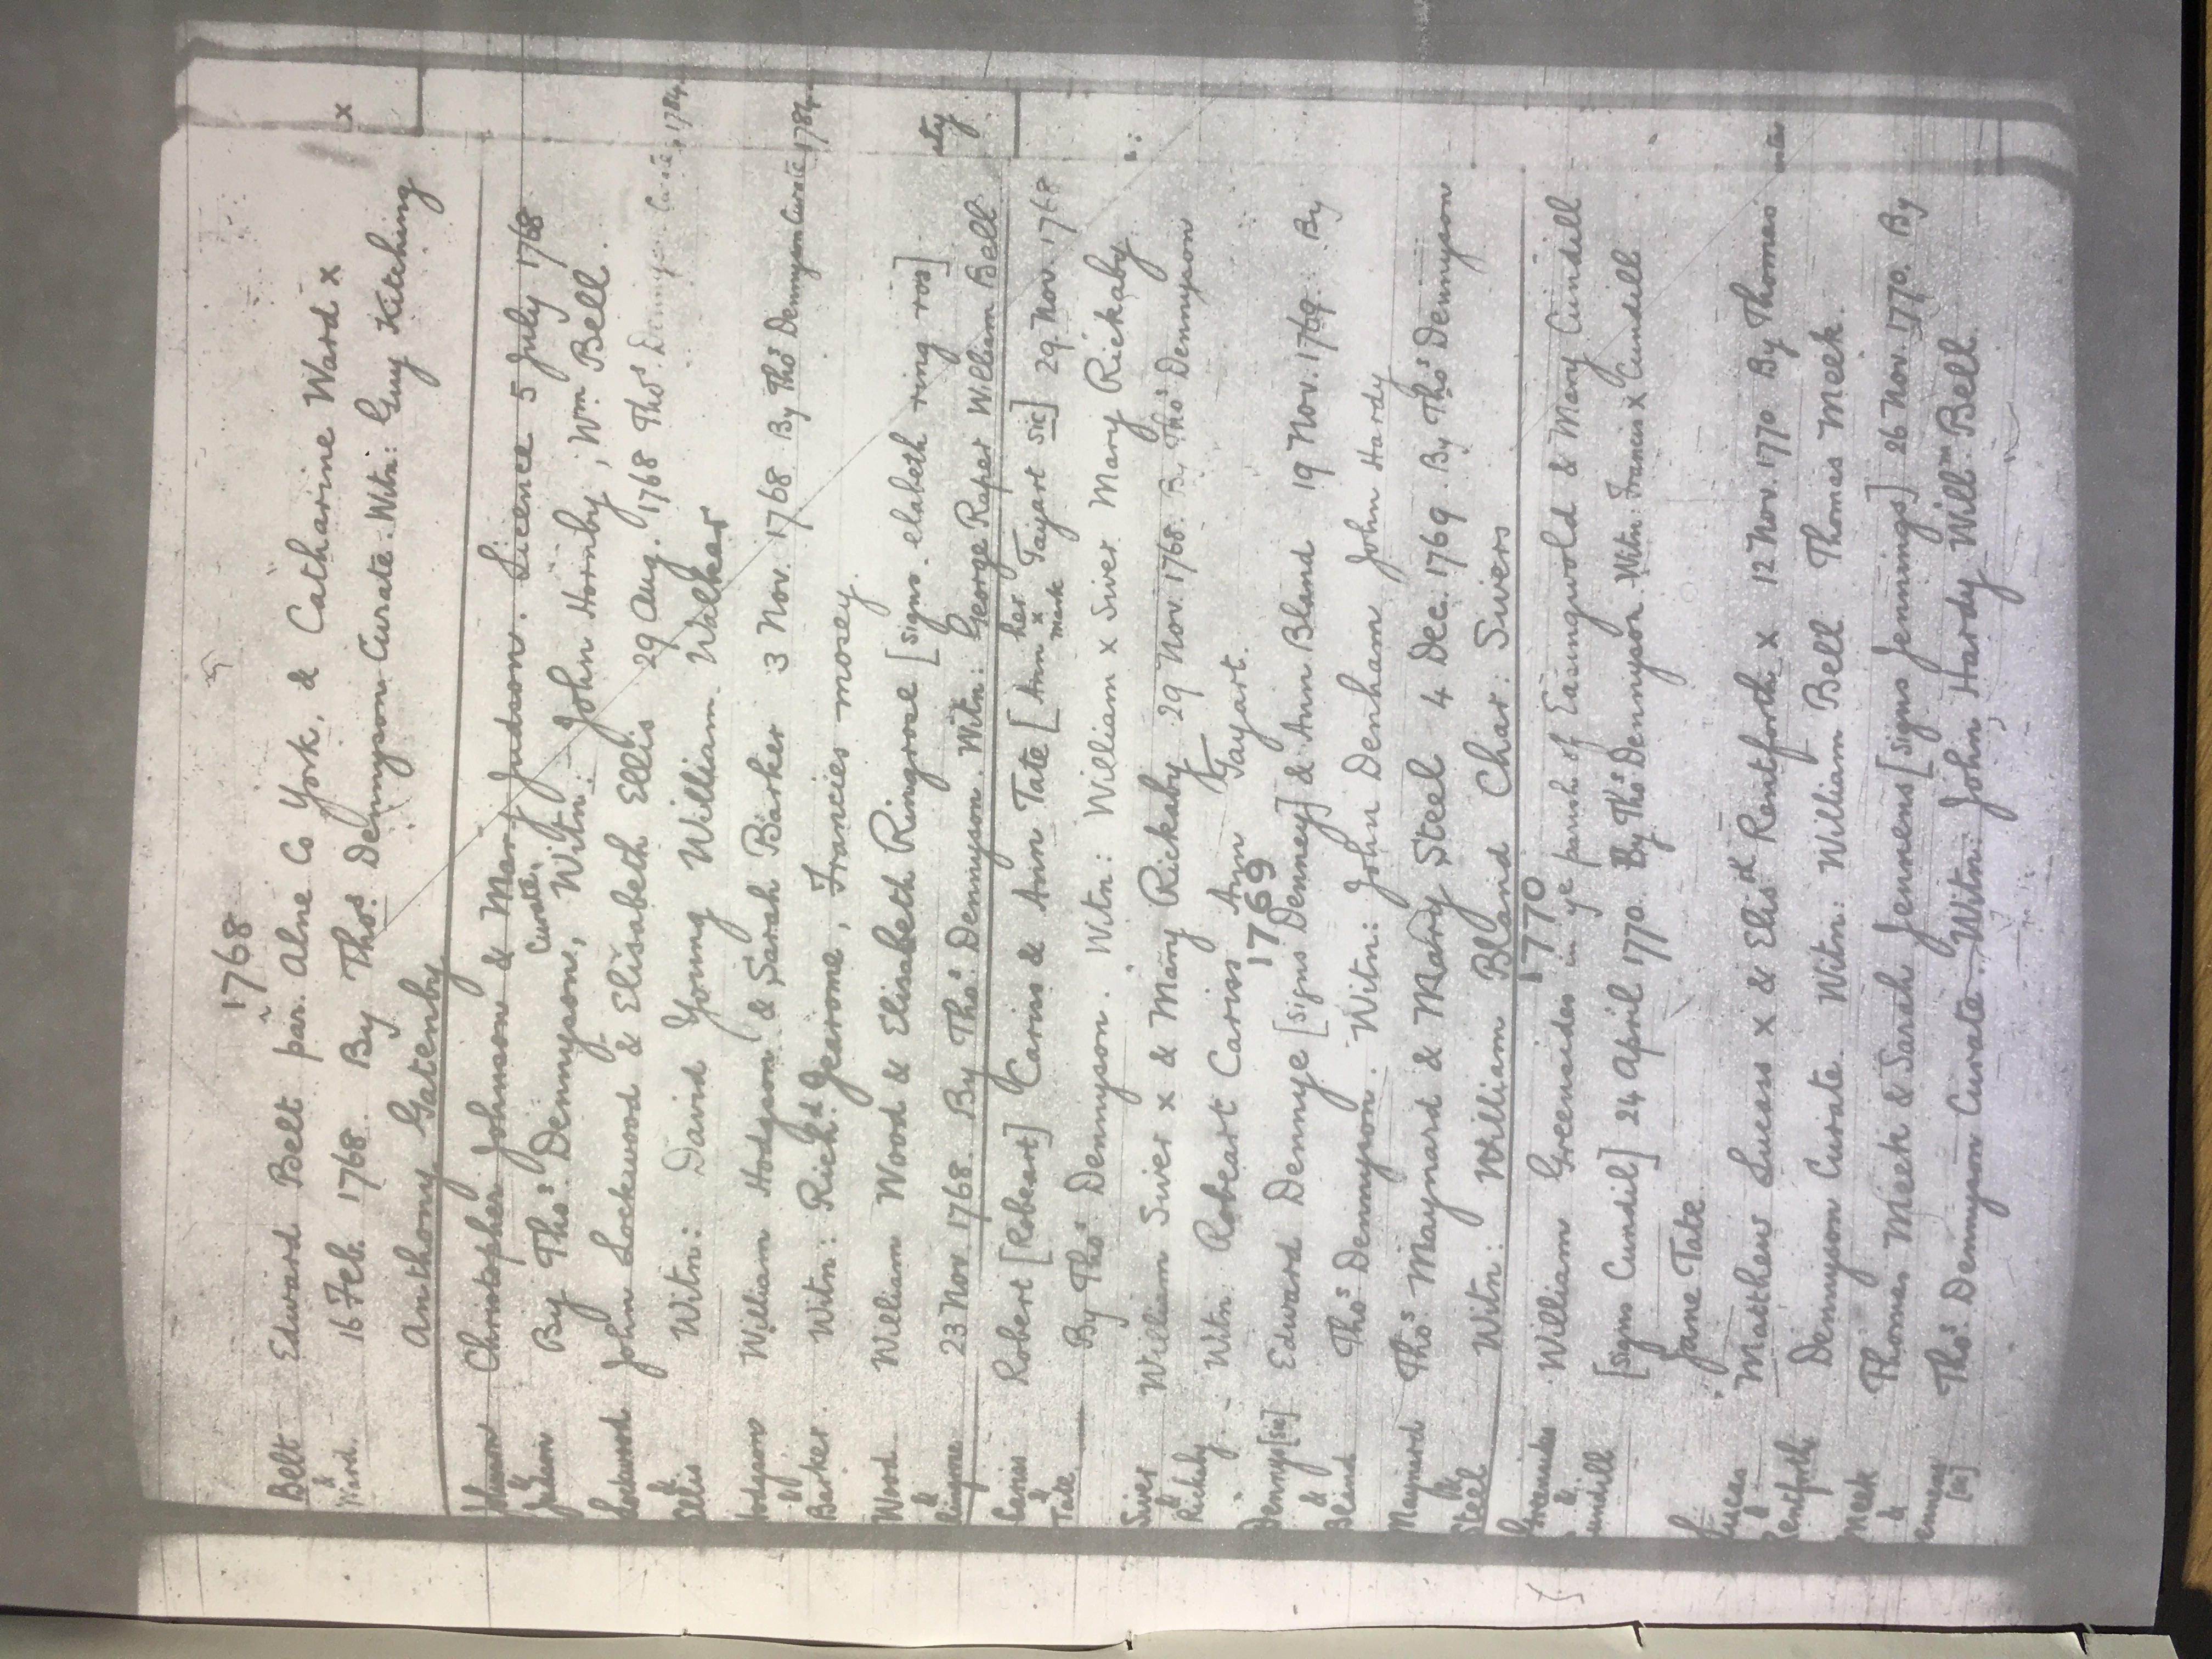 1768
Belt Edward Belt par. Alne Co York, & Catharine Ward x
& 16 Feb. 1768. By Thos. Dennyson Curate. Witn: Guy Kitching x
Ward. Anthony Gatenby.
Johnson Christopher Johnson & Mary Judson. Licence 5 July 1768
& Judson By Thos. Dennyson, Curate, Witn: John Hornby, Wm. Bell.
Lockwood John Lockwood & Elisabeth Ellis 29 Aug. 1768 Thos. Dennyson Curate, 1784
& Ellis Witn: David Young William Walkar
Hodgson William Hodgson & Sarah Barker 3 Nov. 1768 By Thos Dennyson Curate 1784
& Barker. Witn: Richd. Jearome, Francies mosey.
Wood William Wood & Elisabeth Ringrose [signs elabeth ring ros]
& Ringrose 23 Nov 1768. By Thos. Dennyson. Witn: George Raper William Bell
Cariss Robert [Robeart] Cariss & Ann Tate [Ann her x mark Tayart sic] 29 Nov. 1768
& Tate By Thos Dennyson. Witn: William x Siver Mary Rickaby
Siver William Siver x & Mary Rickaby 29 Nov. 1768. By Thos Dennyson
& Rickaby Witn. Robeart Cariss Ann Tayart.
1769
Dennye [sic] Edward Dennye [signs Denney] & Ann Bland 19 Nov. 1769. By
& Bland Thos Dennyson. Witn: John Denham John Hardy
Maynard Thos. Maynard & Mary Steel 4 Dec. 1769 By Thos Dennyson
& Steel Witn: William Bland Char: Sivers
1770
Greensides William Greensides in ye parish of Easingwold & Mary Cundill
& Cundill [signs Cundil] 24 April 1770. By Thos Dennyson. Witn: Francis x Cundill
Jane Tate
Lucas Matthew Lucass x & Elisth Rentforth x 12 Nov. 1770. By Thomas
& Rentforth Dennyson Curate. Witn: William Bell Thomas Meek.
Meek Thomas Meek & Sarah Jennens [signs Jennings] 26 Nov. 1770. By
& Jennens [sic] Thos. Dennyson Curate. Witn: John Hardy Willm Bell.